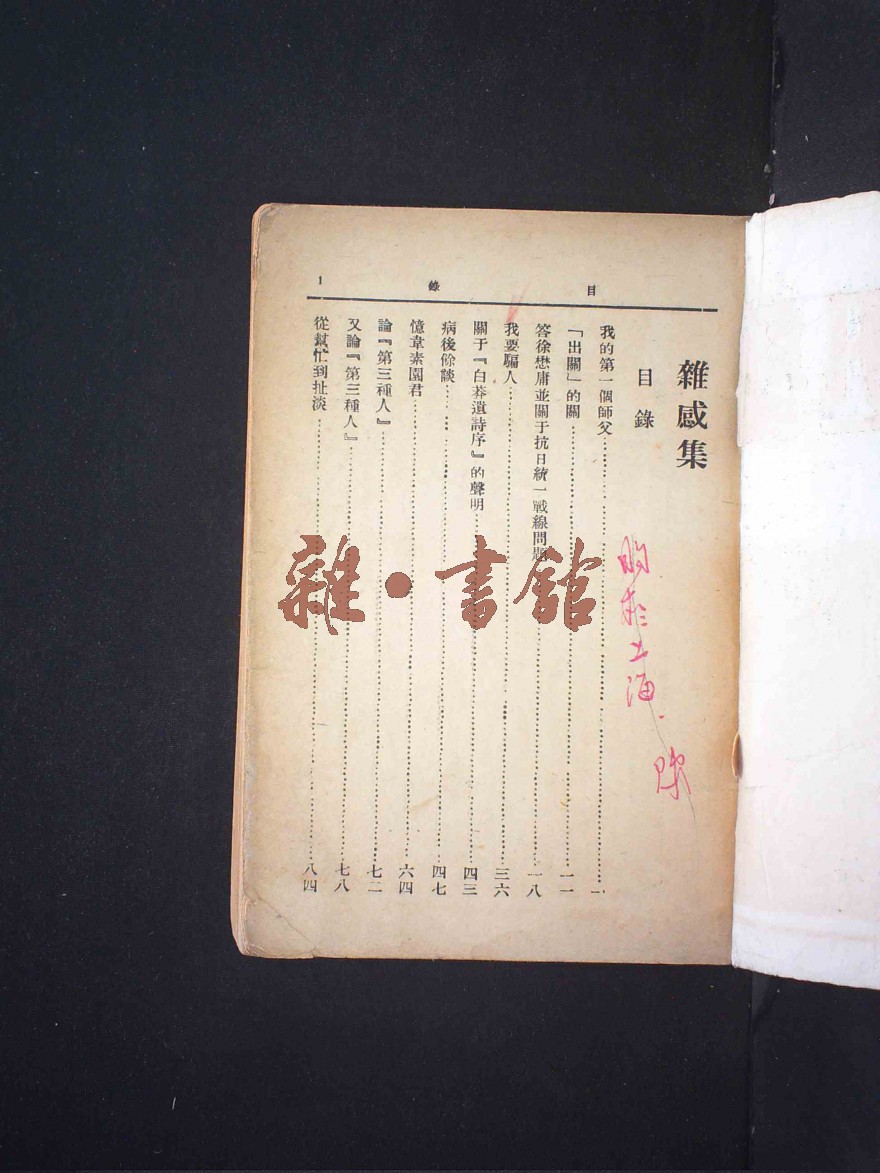 目 錄 1
雜感集
目錄
我的第一個師父……一
「出關」的關……一一
答徐懋庸並關于抗日統一戰線問題……一八
我要騙人……三六
關于『白莽遺詩序』的聲明……四三
病後餘談……四七
憶韋素園君……六四
論『第三種人』……七二
又論『第三種人』……七八
從幫忙到扯淡……八四
於上海.
雜·書館